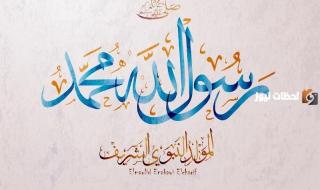 صلى الله عليه وسلم
محمد رسول الله
لحظات نيوز
المولد النبوي الشريف
Elmawlid Ennabawi Echarif